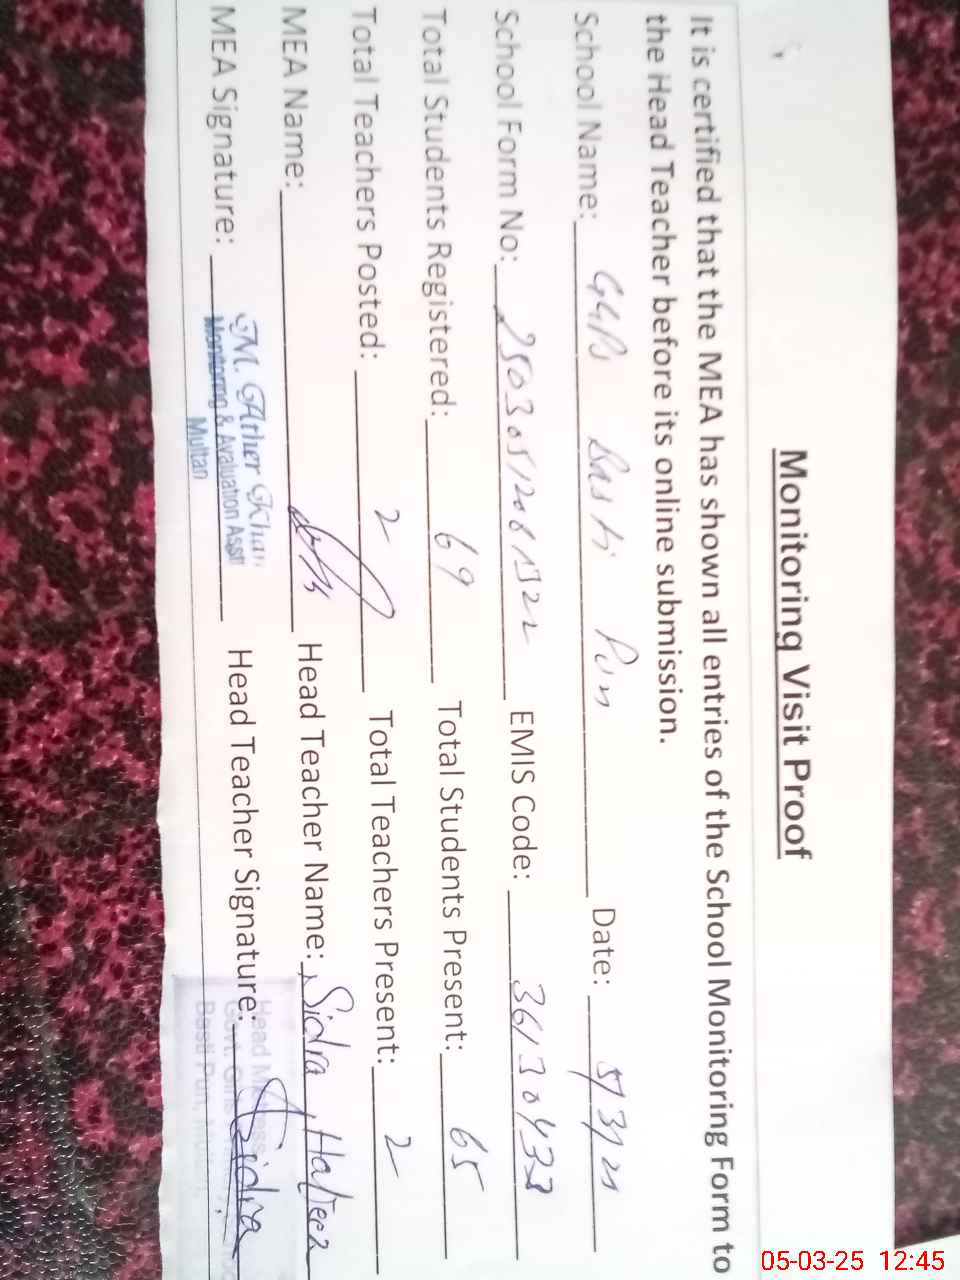 Monitoring Visit Proof
It is certified that the MEA has shown all entries of the School Monitoring Form to
the Head Teacher before its online submission.
School Name: GGPS Basti Pun Date: 5/3/25
School Form No: 25030512061322 EMIS Code: 36130433
Total Students Registered: 69 Total Students Present: 65
Total Teachers Posted: 2 Total Teachers Present: 2
MEA Name: Head Teacher Name: Sidra Hafeez
MEA Signature: M. Ather Khan Head Teacher Signature: Sidra
Monitoring & Avaluation Asstt
Multan
Head
Govt. Girls
Basti Pun, Multan
05-03-25 12:45